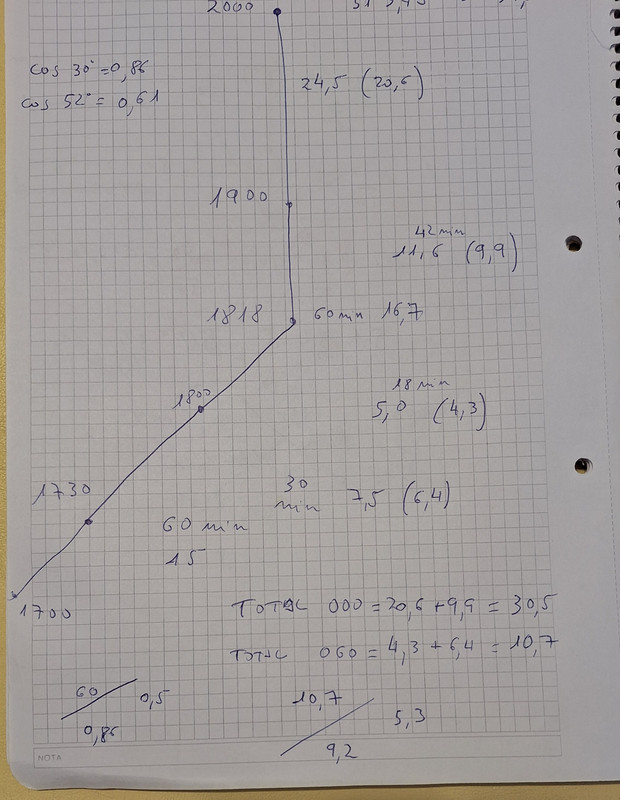 2000
cos 30° = 0,86
24,5 (20,6)
cos 52° = 0,61
1900
42 min
11,6 (9,9)
1818 60 min 16,7
18 min
1800
5,0 (4,3)
1730
30 min 7,5 (6,4)
60 min
15
1700
TOTAL 000 = 20,6 + 9,9 = 30,5
TOTAL 060 = 4,3 + 6,4 = 10,7
60 0,5
0,86
10,7 5,3
9,2
NOTA